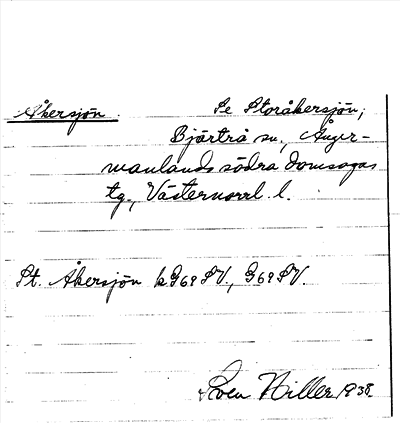 Åkersjön. Se Storåkersjön;
Bjärtrå sn., Ånger-
manlands södra domsagas
tg., Västernorrl. l.
St. Åkersjön k G69SV., G69SV.
Sven Hiller 1938.